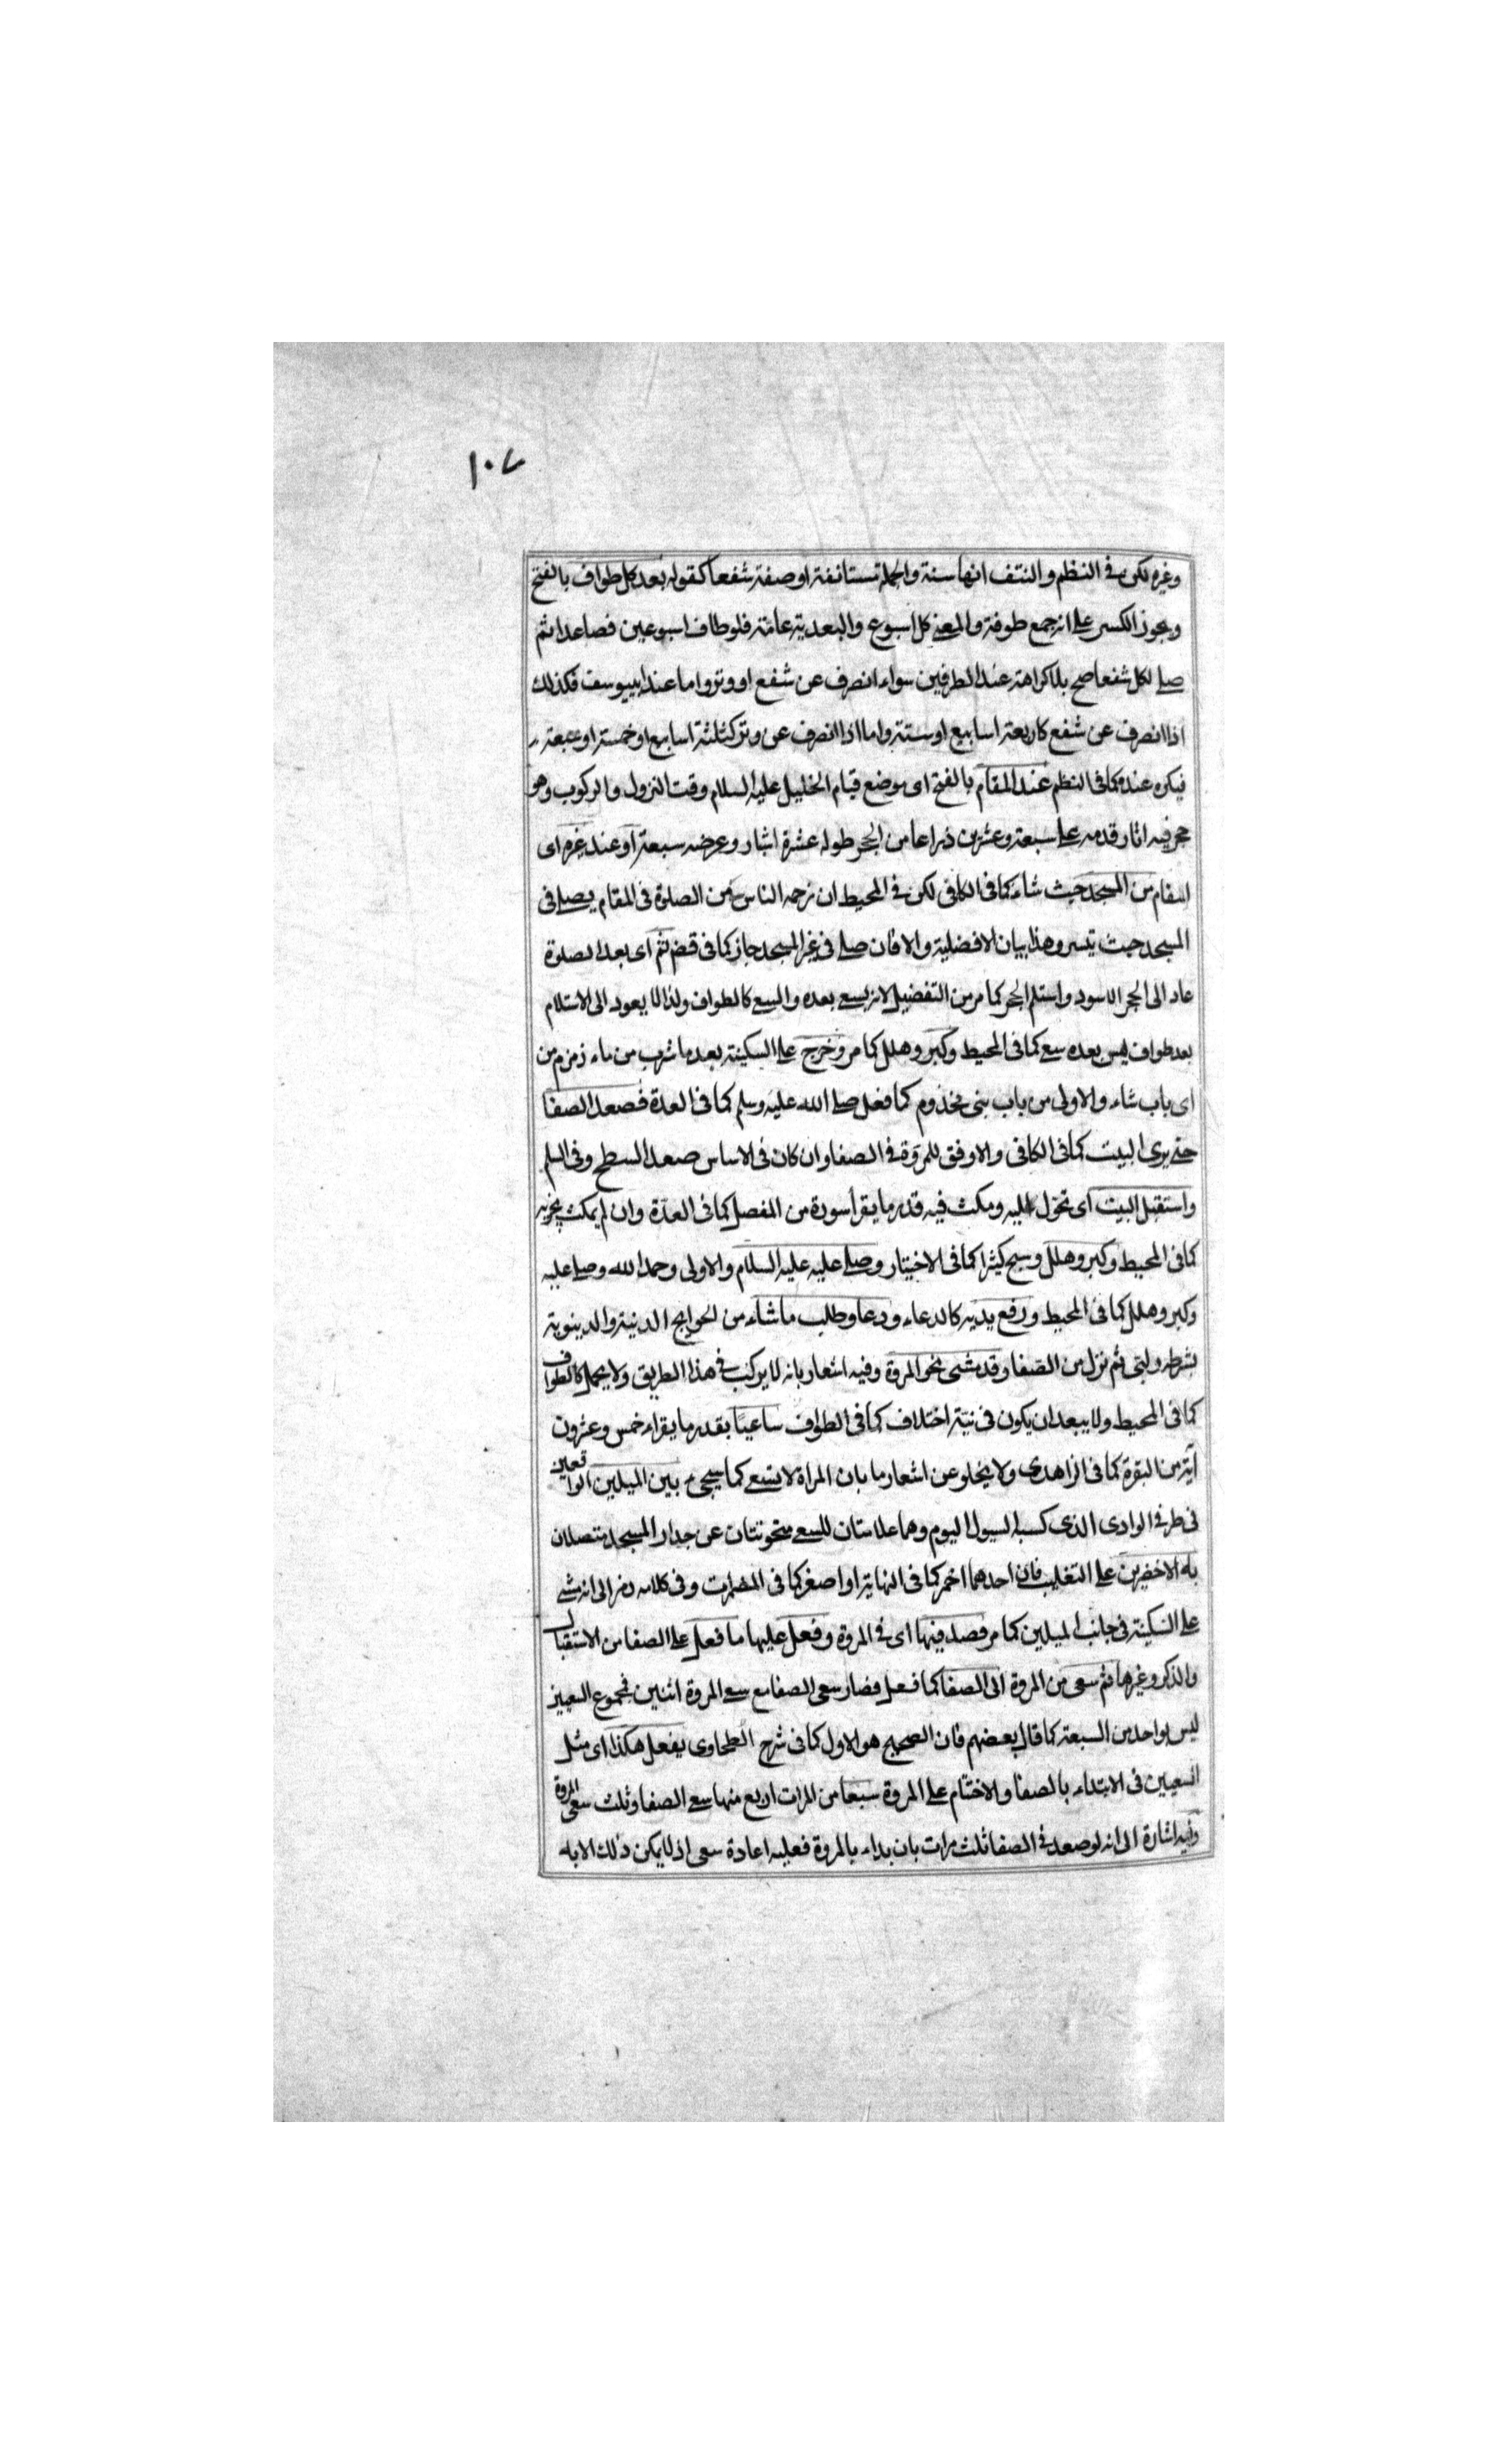 ١٠٧
وغيره لكن في النظم والنتف انها سنة والجملة مستانفة او صفة شفعا كقوله بعد كل طواف بالفتح
ويجوز الكسر على انه جمع طوفة والمعنى كل اسبوع والبعدية عامة فلو طاف اسبوعين فصاعدا ثم
صلى لكل شفعا صح بلا كراهة عند الطرفين سواء انصرف عن شفع او وتر واما عند ابييوسف فكذلك
اذا انصرف عن شفع كاربعة اسابيع او ستة واما اذا انصرف عن وتر كثلثة اسابيع او خمسة او سبعة
فيكره عنده كما في النظم عند المقام بالفتح اى موضع قيام الخليل عليه السلام وقت النزول والركوب وهو
حجر فيه اثار قدمه على سبعة وعشرين ذراعا من الحجر طوله عشرة اشبار وعرضه سبعة او عند غيره اى
المقام من المسجد حيث شاء كما في الكافى لكن في المحيط ان زحمه الناس من الصلوة في المقام يصلى في
المسجد حيث تيسر وهذا بيان الافضلية والا فان صلى في غير المسجد جاز كما في قضـ ثم اى بعد الصلوة
عاد الى الحجر الاسود واستلم الحجر كما مر من التفضيل لانه يسعى بعده والسعى كالطواف ولذا لا يعود الى الاستلام
بعد طواف ليس بعده سعى كما في المحيط وكبر وهلل كما مر وخرج على السكينة بعد ما شرب من ماء زمزم من
اى باب شاء والاولى من باب بنى مخذوم كما فعل صلى الله عليه وسلم كما في العدة فصعد الصفا
حتى يرى البيت كما في الكافى والاوفق للمروة في الصفا وان كان في الاساس صعد السطح وفى السلم
واستقبل البيت اى تحول اليه ومكث فيه قدر ما يقرأ سورة من المفصل كما في العدة وان لم يمكث يجزيه
كما في المحيط وكبر وهلل وسبح كثيرا كما في الاختيار وصلى عليه عليه السلام والاولى وحمد الله وصلى عليه
وكبر وهلل كما في المحيط ورفع يديه كالدعاء ودعا وطلب ما شاء من الحوايج الدنية والدينوية
بشرطه ولبى ثم نزل من الصفا وقد مشى نحو المروة وفيه اشعار بانه لا يركب في هذا الطريق ولا يحمل كالطواف
كما في المحيط ولا يبعد ان يكون في نيّته اختلاف كما في الطواف ساعيًا بقدر ما يقراء خمس وعشرون
آية من البقرة كما في الزاهدى ولا يخلو عن اشعار ما بان المراة لا تسعى كما سيجىء بين الميلين الواقعين
في طرفى الوادى الذى كسبه السيول اليوم وهما علامتان للسعى منحوتتان عن جدار المسجد متصلان
به الاخضرين على التغليب فان احدهما احمر كما في النهاية او اصفر كما في المضمرات وفى كلامه رمز الى انه مشى
على السكينة في جانب الميلين كما مر فصعد فيها اى في المروة وفعل عليها ما فعل على الصفا من الاستقبال
والذكر وغيرها ثم سعى من المروة الى الصفا كما فعل فصار سعى الصفا مع سعى المروة اثنين فمجموع السعيين
ليس بواحد من السبعة كما قال بعضهم فان الصحيح هو الاول كما في شرح الطحاوى يفعل هكذا اى مثل
السعيين في الابتداء بالصفا والاختتام على المروة سبعا من المرات اربع منها سعى الصفا وثلث سعى المروة
وفيه اشارة الى انه لو صعد في الصفا ثلث مرات بان بداء بالمروة فعليه اعادة سعى اذ لا يمكن ذلك الا به